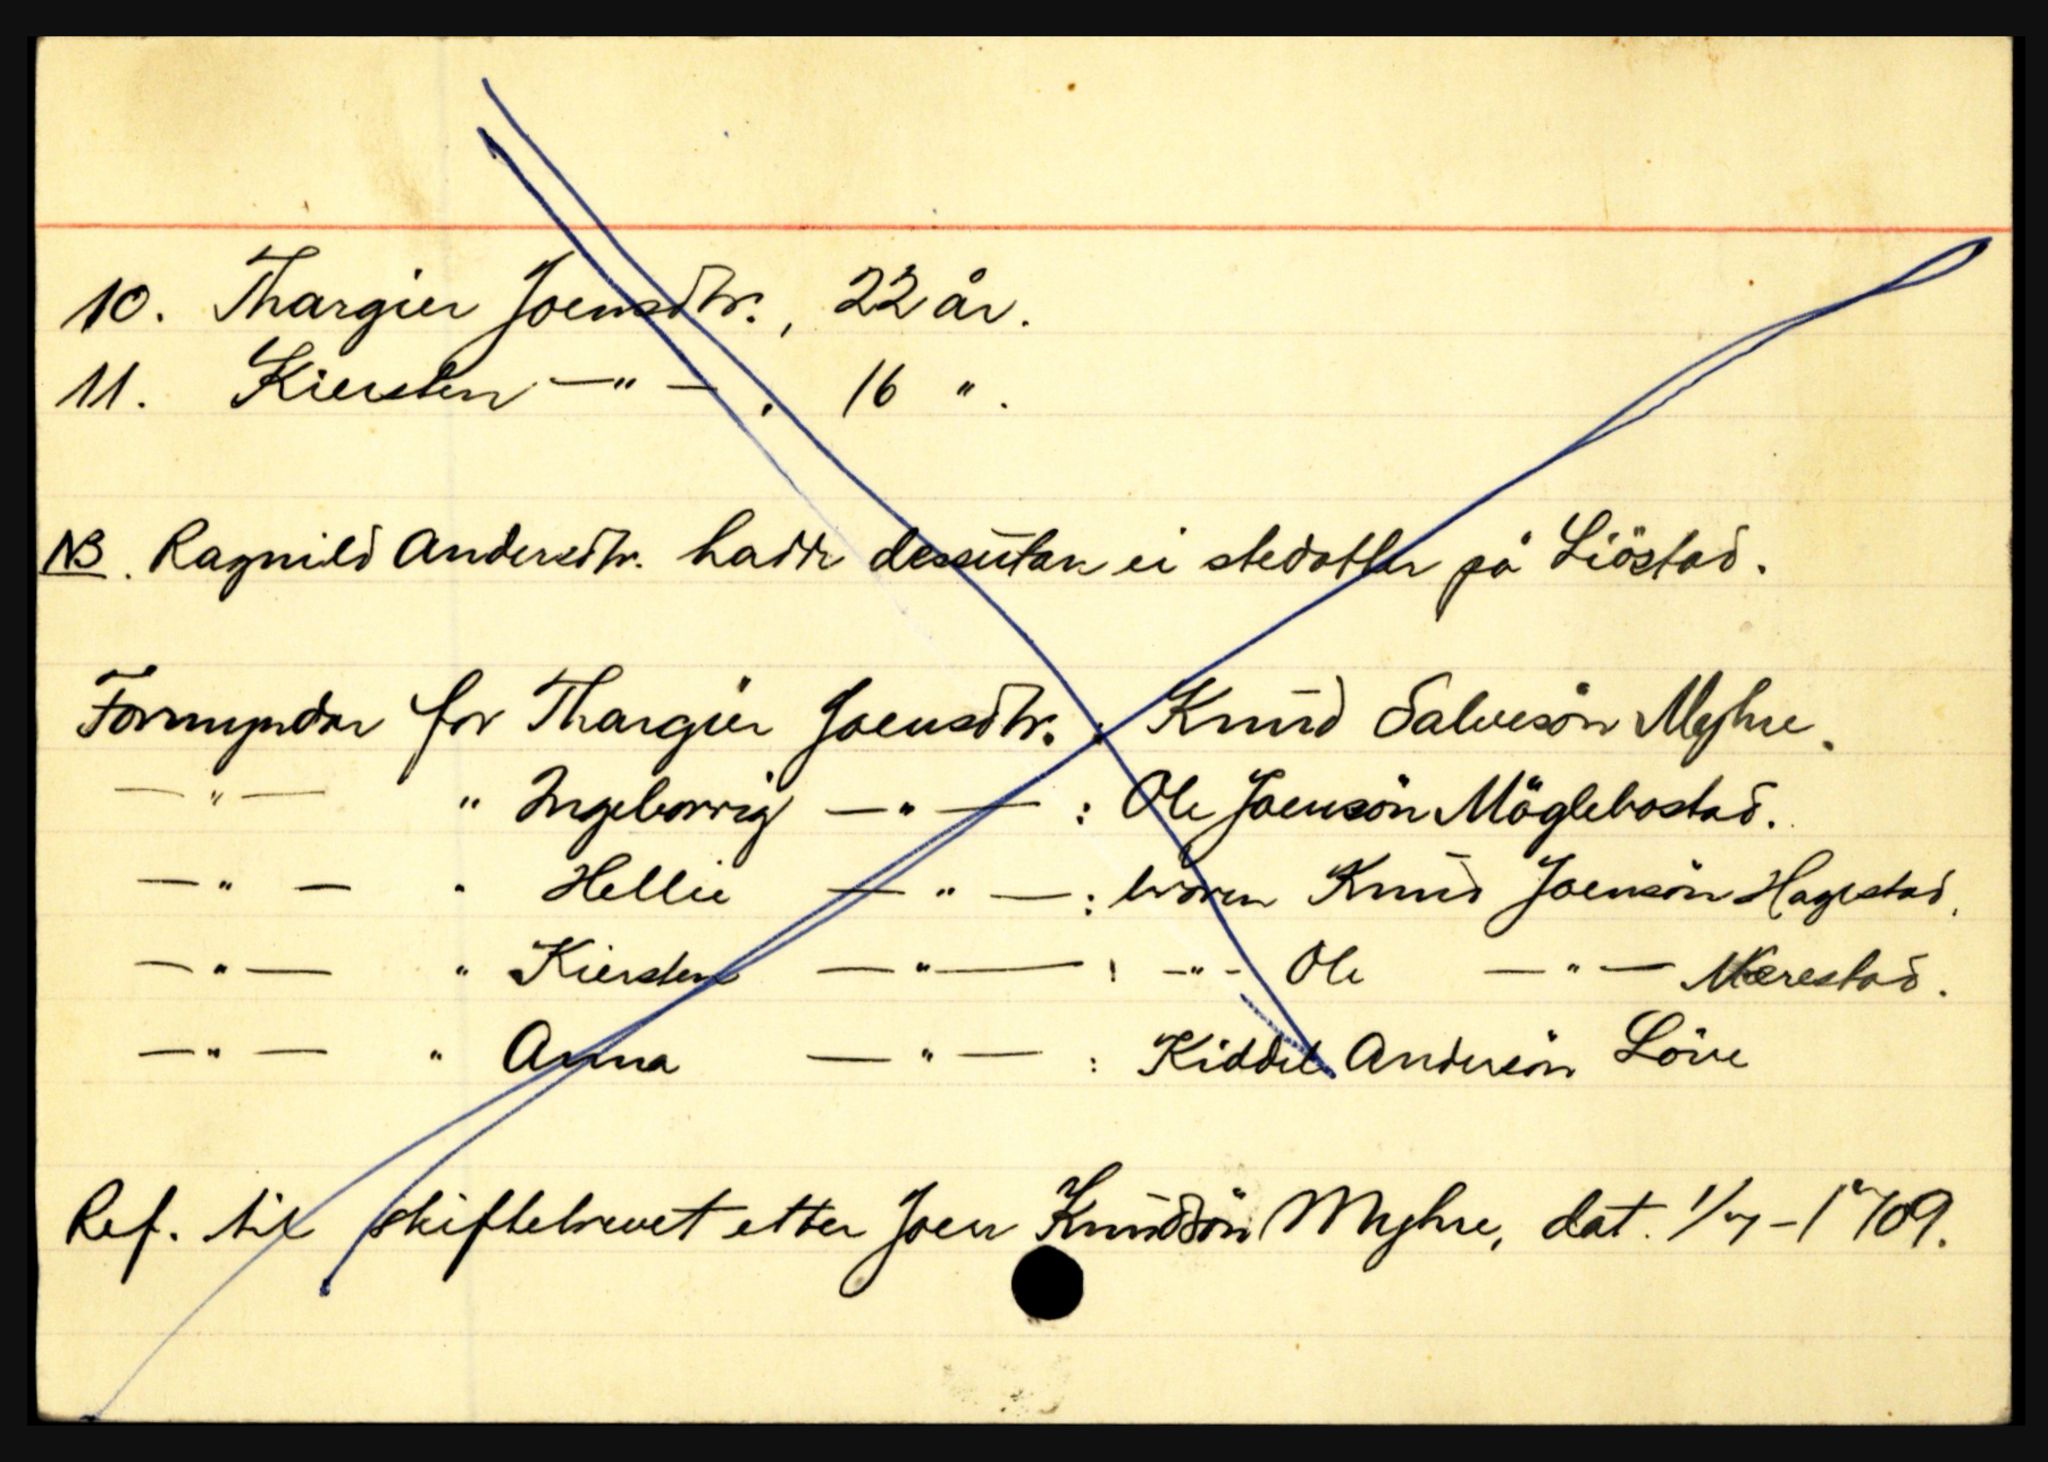 10. Thargier Joensdtr., 22 år.
11. Kiersten —"—, 16 ".
NB. Ragnild Andersdtr. hadde dessutan ei stedotter på Liöstad.
Formyndar for Thargier Joensdtr.: Knud Salvesön Myhre.
—"— " Ingeborrig —"—: Ole Joensön Möglebostad.
—"— " Hellie —"—: broren Knud Joensön Hagestad.
—"— " Kiersten —"—: -"- Ole —"— Nærestad.
—"— " Anna —"—: Kiddel Andersön Löve
Ref. til skiftebrevet etter Joen Knudsön Myhre, dat. 1/7-1709.